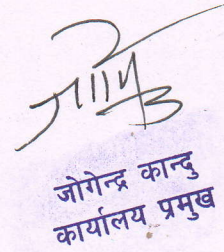 जोगेन्द्र कान्दु
कार्यालय प्रमुख